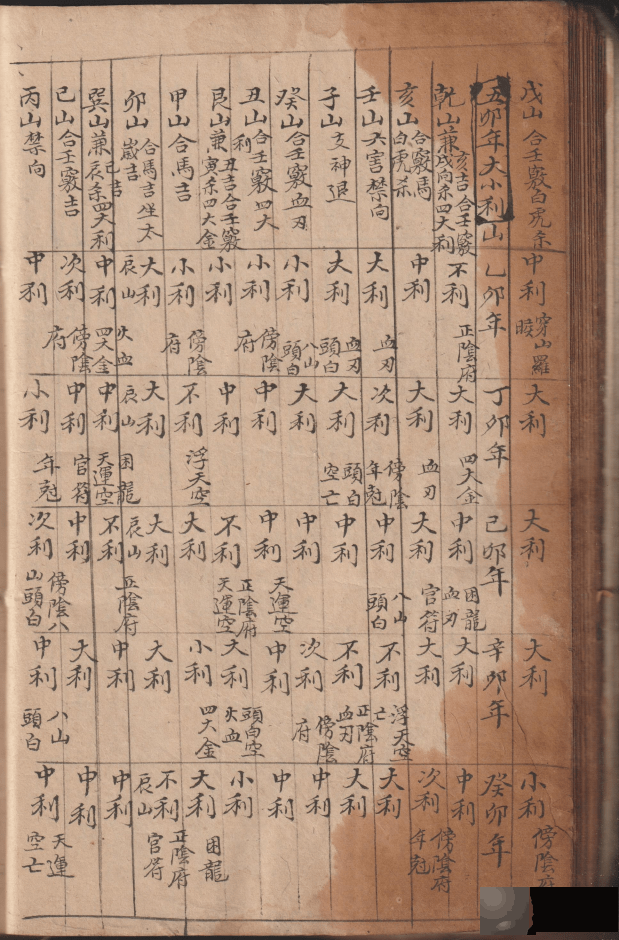 戌山 合壬竅白虎杀
中利 穿山羅睺
大利
大利
大利
小利 傍陰府
五卯年大小利山
乙卯年
丁卯年
己卯年
辛卯年
癸卯年
乾山兼亥吉合壬竅戌向杀四大利
不利 正陰府
大利 四大金
中利 困龍血刃
大利
中利 傍陰府
亥山 合竅馬白虎杀
中利
大利 血刃
大利 官符
大利
次利 年尅
壬山 六害禁向
大利 血刃
次利 傍陰年尅
中利 八山頭白
不利 浮天空亡
大利
子山 支神退
大利 血刃頭白
大利 頭白空亡
中利
不利 正陰府血刃
大利
癸山 合壬竅血刃
小利 八山頭白
大利
中利
次利 傍陰府
中利
丑山 合壬竅四大利
小利 傍陰府
中利
中利 天運空
中利
中利
艮山兼丑吉合壬竅寅杀四大金
小利
中利
不利 正陰府天運空
大利 頭白空
小利
甲山 合馬吉
小利 傍陰府
不利 浮天空
大利
小利 火血四大金
大利 困龍
卯山 合馬吉坐太歲吉
大利
大利
大利
大利
不利 正陰府官符
辰山
辰山
辰山
辰山
巽山兼巳吉辰杀四大利
中利 火血四大金
中利 困龍天運空
不利 正陰府
中利
中利
巳山 合壬竅吉
次利 傍陰府
中利 官符
中利 傍陰八山頭白
大利
中利
丙山 禁向
中利
小利 年尅
次利
中利 八山頭白
中利 天運空亡